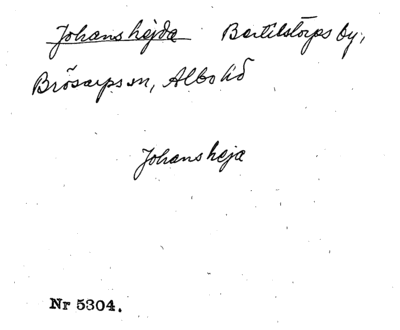 Johanshejda Bertilstorps by,
Brösarps sn, Albo hd
Johansheja
Nr 5304.